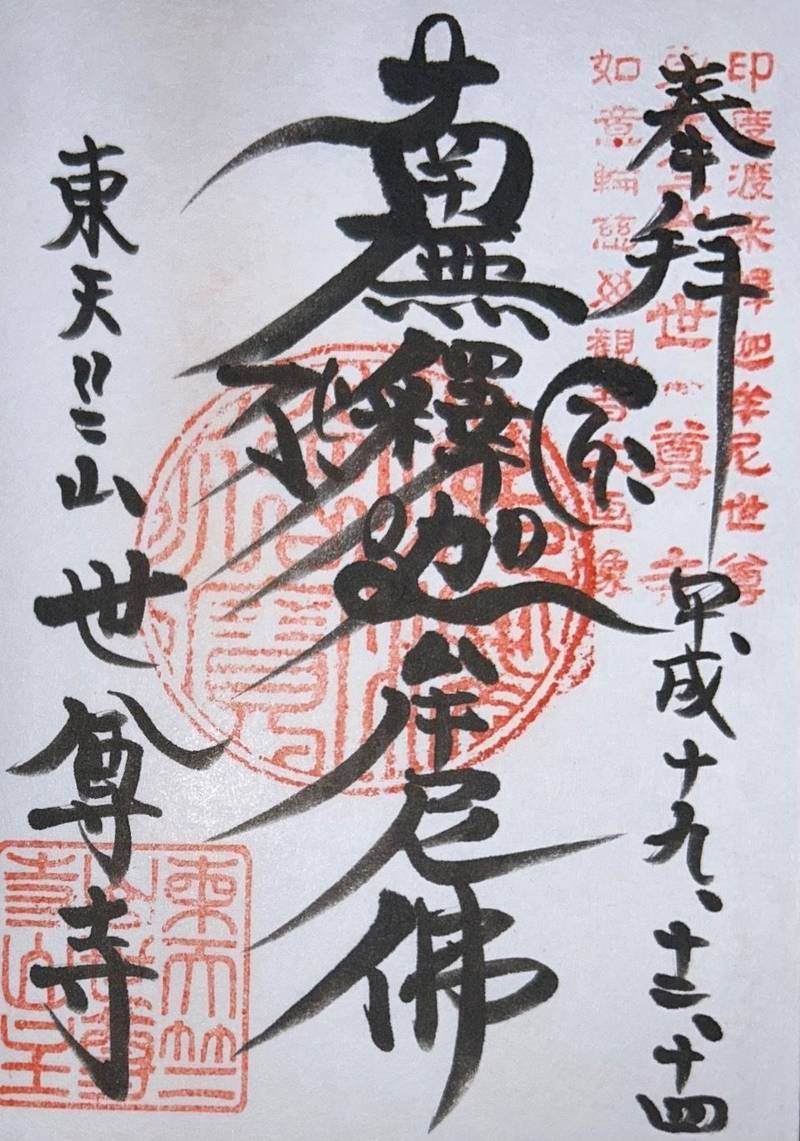 印度渡来釋迦牟尼世尊
世尊寺
如意輪慈母観音
奉拝
平成十九、十二、十四
南無釋迦牟尼佛
東天竺山 世尊寺
東天竺
山世尊